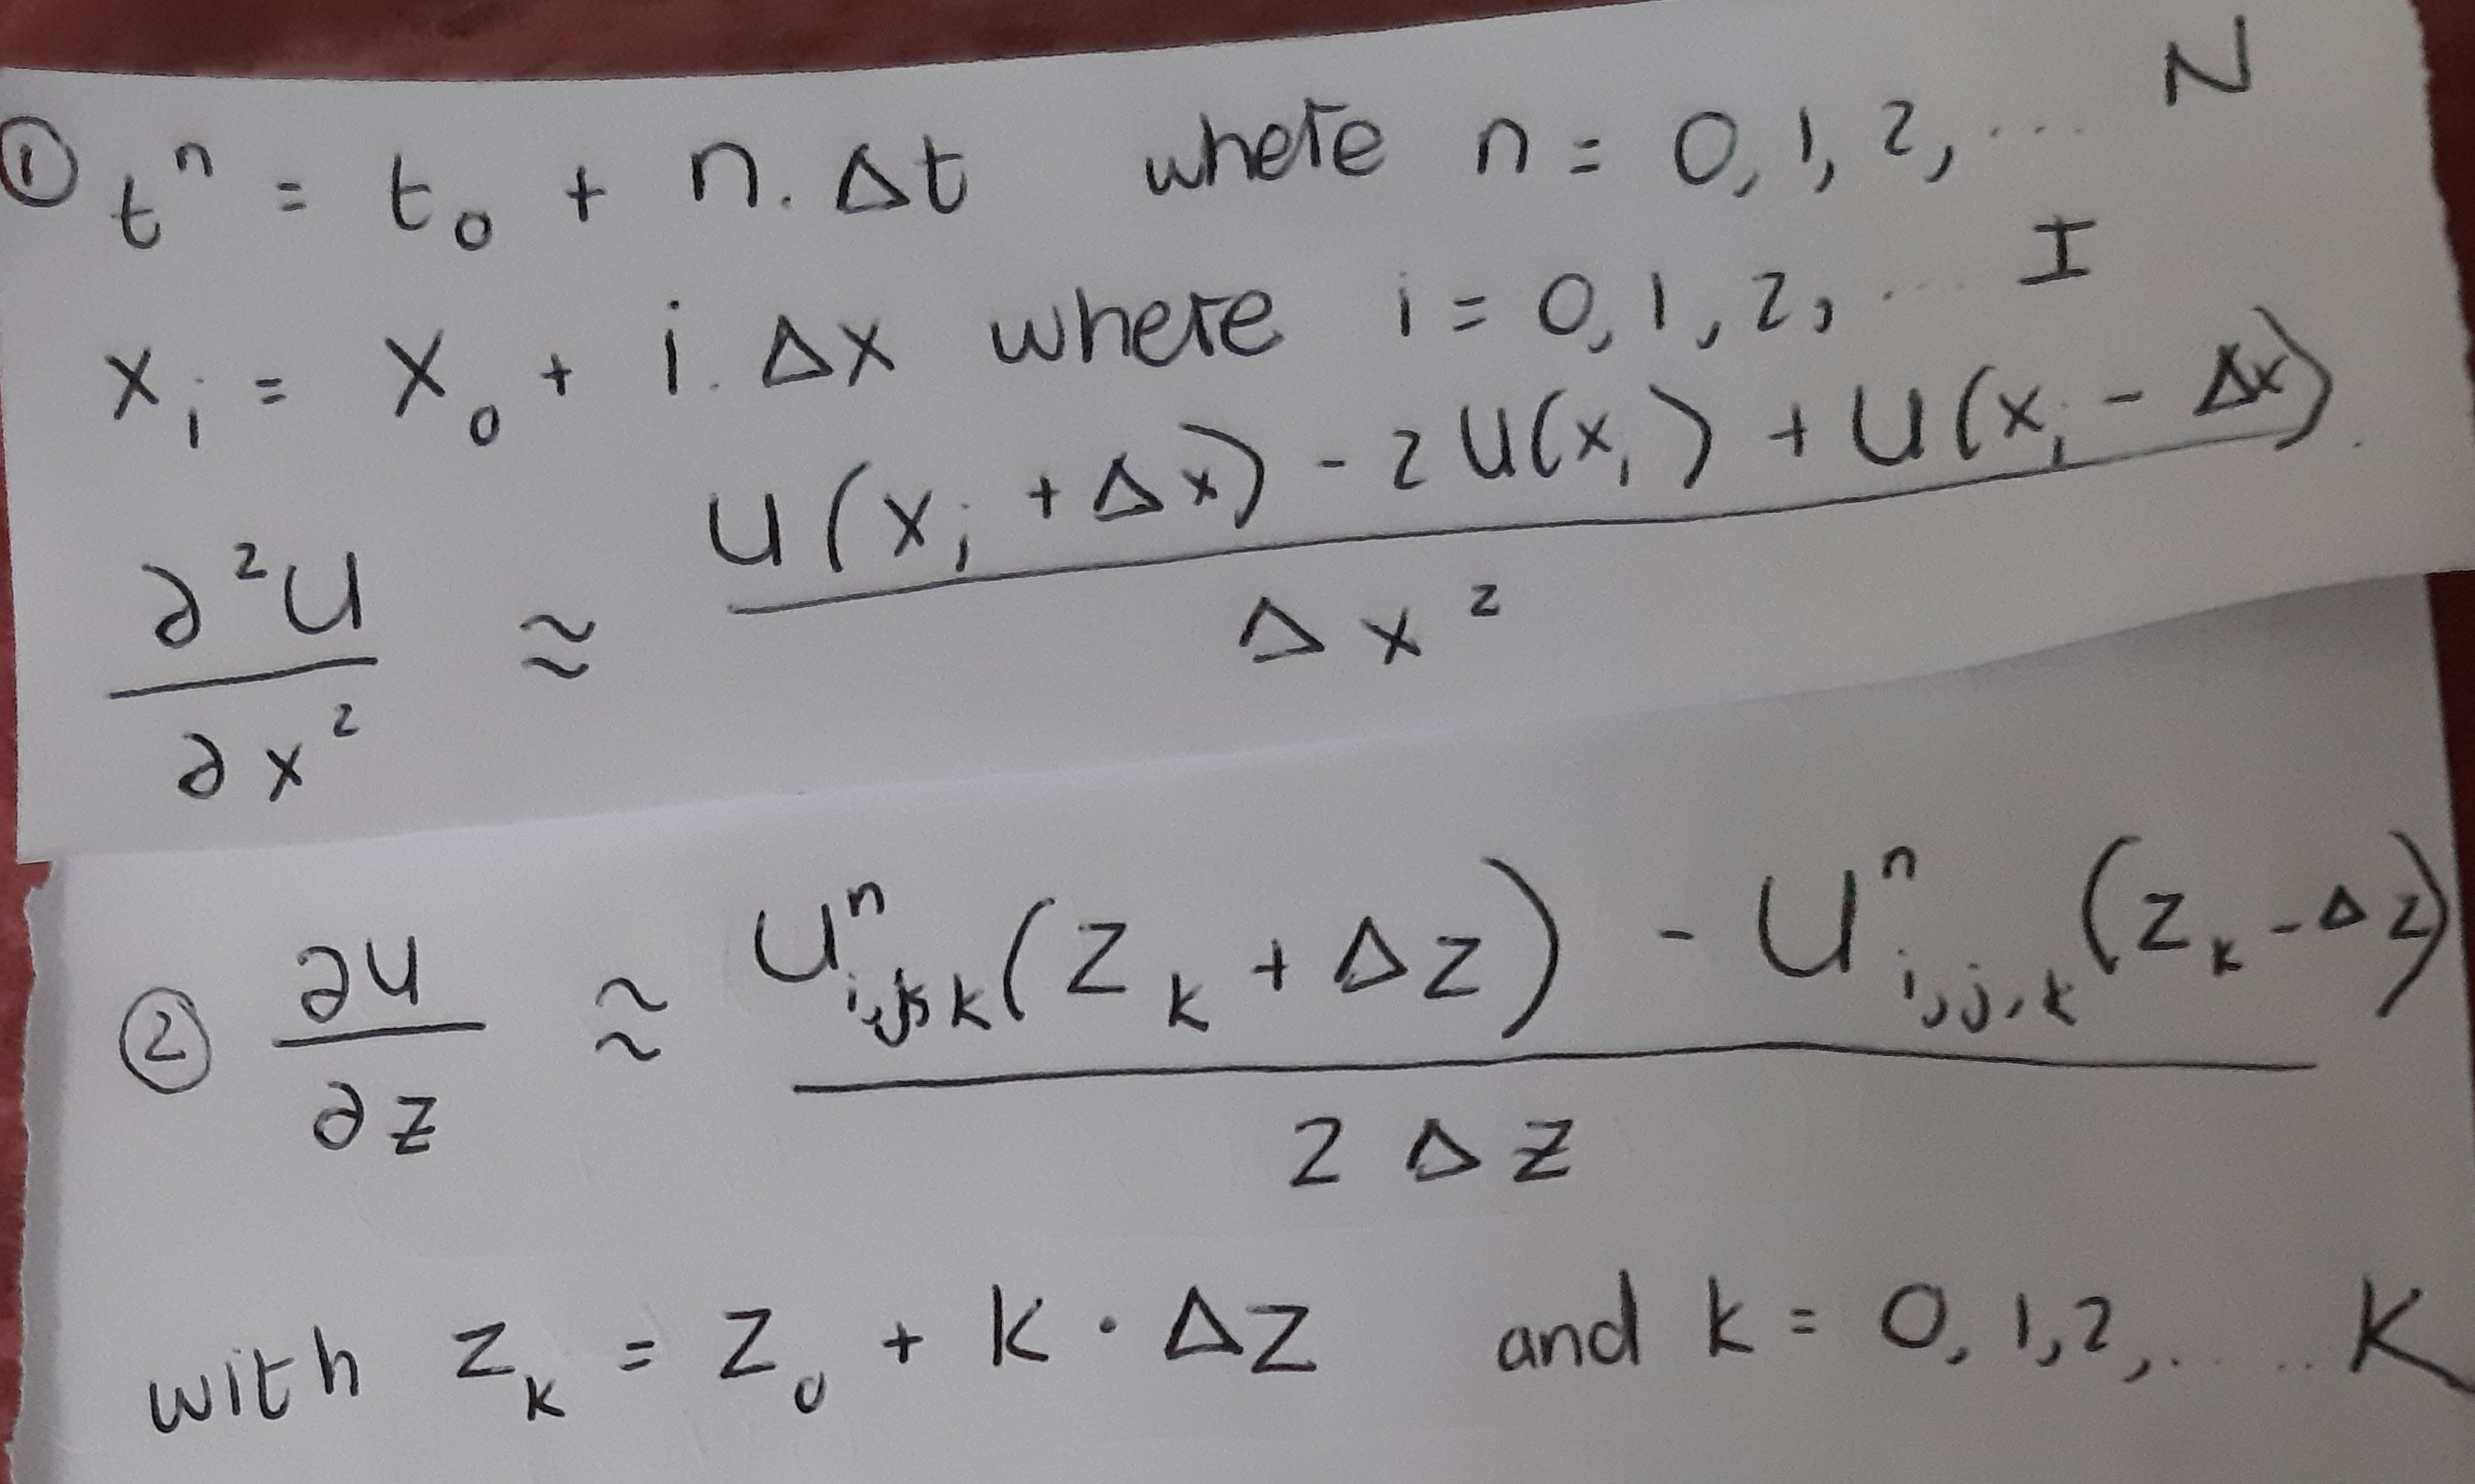 ① tⁿ = t₀ + n. Δt where n = 0, 1, 2, ... N
xᵢ = x₀ + i. Δx where i = 0, 1, 2, ... I
∂²U/∂x² ≈ (U(xᵢ + Δx) - 2U(xᵢ) + U(xᵢ - Δx))/Δx²
② ∂U/∂z ≈ (Uⁿ_{i,j,k}(z_k + Δz) - Uⁿ_{i,j,k}(z_k - Δz))/(2Δz)
with z_k = z₀ + k · Δz and k = 0, 1, 2, ..... K